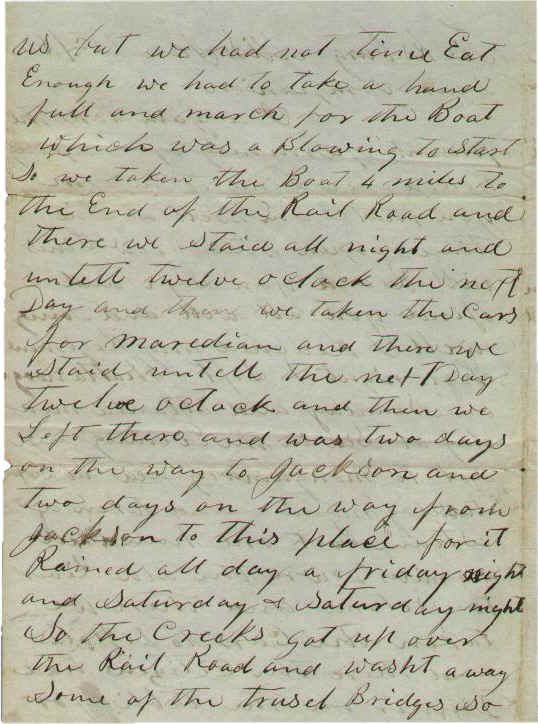 us but we had not time Eat
Enough we had to take a hand
full and march for the Boat
which was a Blowing to start
So we taken the Boat 4 miles to
the End of the Rail Road and
there we staid all night and
untell twelve oclock the next
Day and then we taken the Cars
for maredian and there we
staid untell the next Day
twelve oclock and then we
Left there and was two days
on the way to Jackson and
two days on the way from
Jackson to this place for it
Rained all day a friday night
and Saturday & Saturday night
So the Creeks got up over
the Rail Road and washt away
Some of the trusel Bridges So